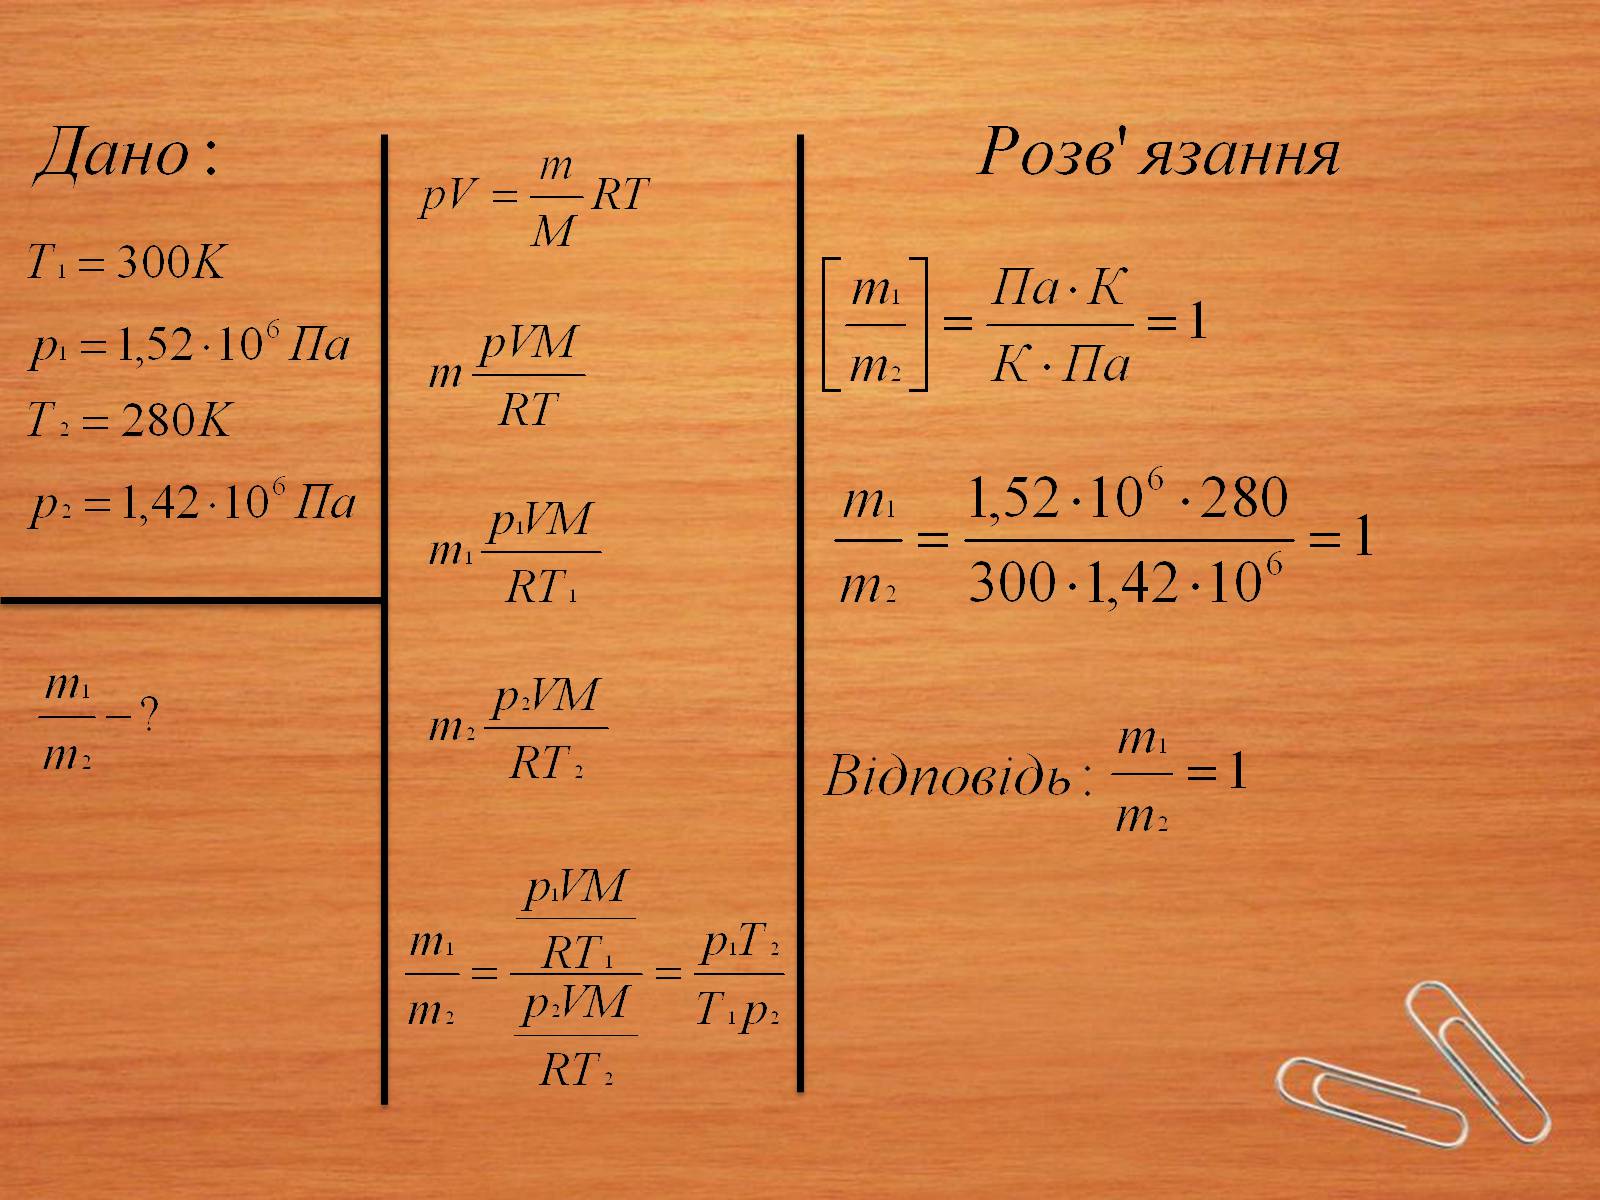 Дано:
T₁ = 300K
p₁ = 1,52·10⁶ Па
T₂ = 280K
p₂ = 1,42·10⁶ Па
m₁/m₂ − ?
pV = m/M RT
m pVM/RT
m₁ p₁VM/RT₁
m₂ p₂VM/RT₂
m₁/m₂ = (p₁VM/RT₁)/(p₂VM/RT₂) = p₁T₂/T₁p₂
Розв'язання
[m₁/m₂] = Па·К/К·Па = 1
m₁/m₂ = 1,52·10⁶·280/300·1,42·10⁶ = 1
Відповідь: m₁/m₂ = 1